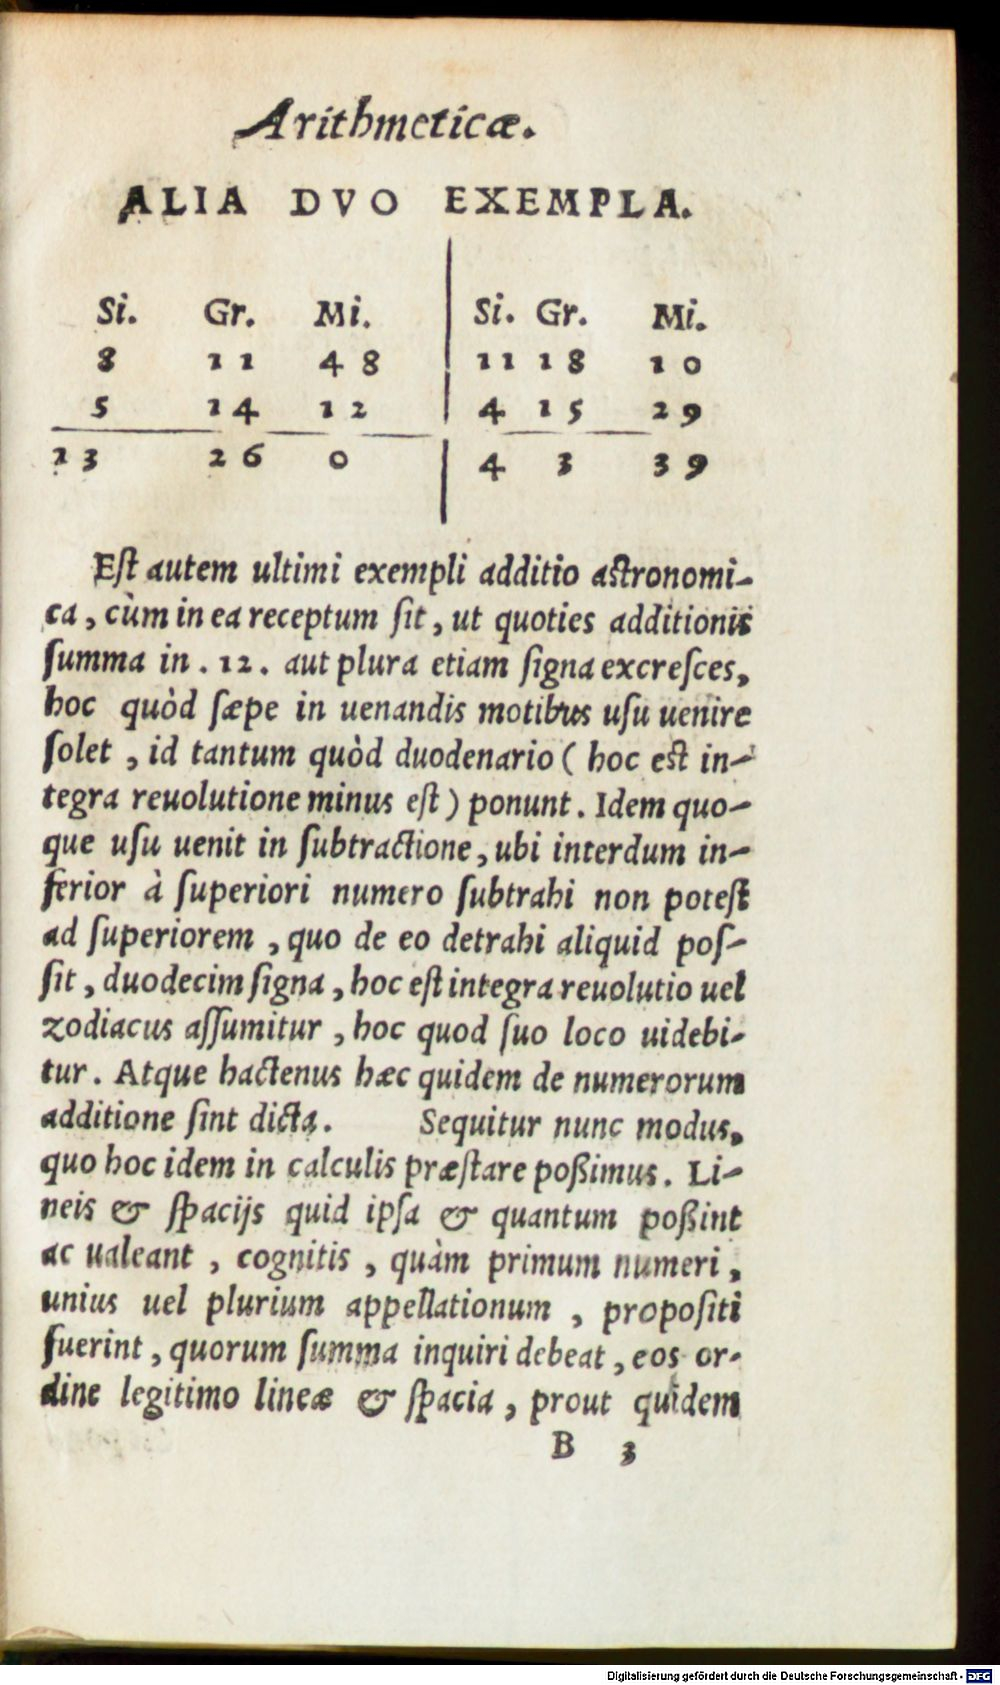 Arithmeticæ.
ALIA DVO EXEMPLA.
Si. Gr. Mi. Si. Gr. Mi.
8 11 48 11 18 10
5 14 12 4 15 29
13 26 0 4 3 39
Est autem ultimi exempli additio astronomi-
ca, cùm in ea receptum sit, ut quoties additionis
summa in .12. aut plura etiam signa excresces,
hoc quòd sæpe in uenandis motibus usu uenire
solet, id tantum quòd duodenario (hoc est in-
tegra reuolutione minus est) ponunt. Idem quo-
que usu uenit in subtractione, ubi interdum in-
ferior à superiori numero subtrahi non potest
ad superiorem, quo de eo detrahi aliquid pos-
sit, duodecim signa, hoc est integra reuolutio uel
zodiacus assumitur, hoc quod suo loco uidebi-
tur. Atque hactenus hæc quidem de numerorum
additione sint dicta. Sequitur nunc modus,
quo hoc idem in calculis præstare poßimus. Li-
neis & spacijs quid ipsa & quantum poßint
ac ualeant, cognitis, quàm primum numeri,
unius uel plurium appellationum, propositi
fuerint, quorum summa inquiri debeat, eos or-
dine legitimo lineæ & spacia, prout quidem
B 3
Digitalisierung gefördert durch die Deutsche Forschungsgemeinschaft - DFG